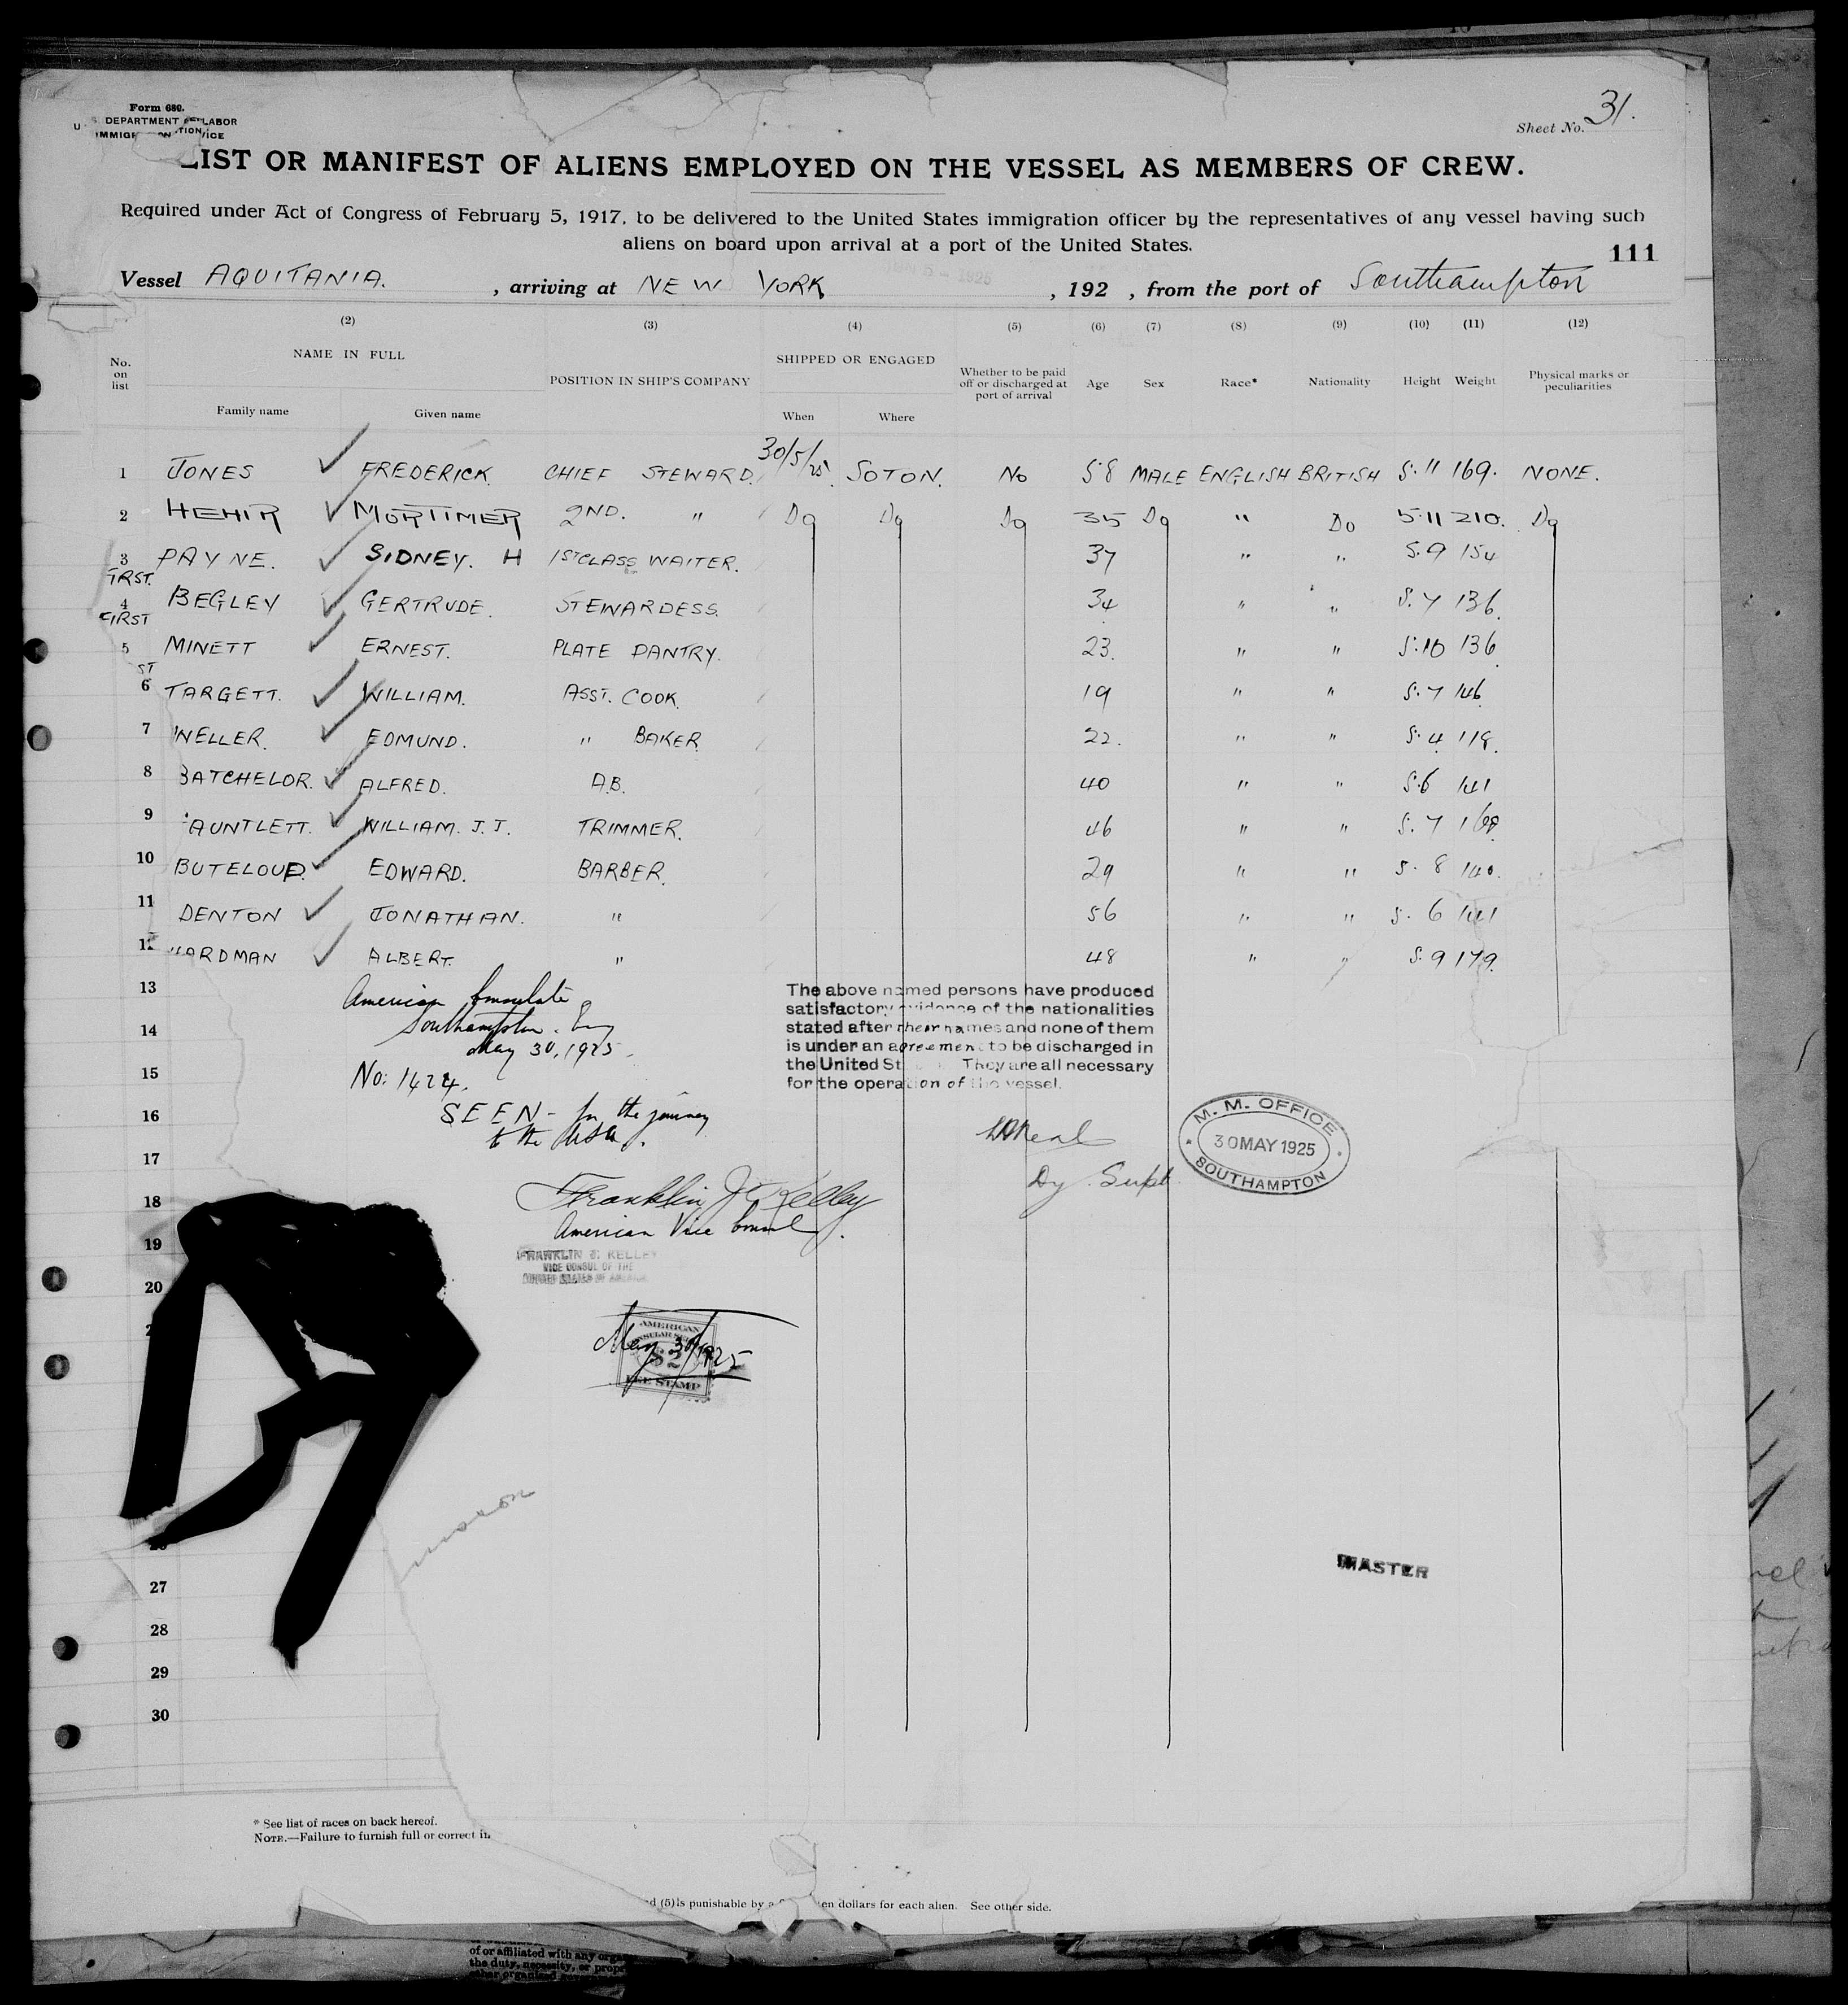 Form 680.
DEPARTMENT LABOR
Sheet No. 31.
LIST OR MANIFEST OF ALIENS EMPLOYED ON THE VESSEL AS MEMBERS OF CREW.
Required under Act of Congress of February 5, 1917, to be delivered to the United States immigration officer by the representatives of any vessel having such
aliens on board upon arrival at a port of the United States.
111
Vessel AQUITANIA. , arriving at NEW YORK , 192 , from the port of Southampton
(2) (3) (4) (5) (6) (7) (8) (9) (10) (11) (12)
No. on list NAME IN FULL POSITION IN SHIP'S COMPANY SHIPPED OR ENGAGED Whether to be paid off or discharged at port of arrival Age Sex Race* Nationality Height Weight Physical marks or peculiarities
Family name Given name When Where
1 JONES FREDERICK. CHIEF STEWARD. 30/5/25. SOTON. No 58 MALE ENGLISH BRITISH 5.11 169. NONE.
2 HEHIR MORTIMER 2ND. " Do Do Do 35 Do " Do 5.11 210. Do
3 PAYNE. SIDNEY. H 1ST CLASS WAITER. 37 " " 5.9 154
4 BEGLEY GERTRUDE. STEWARDESS. 34 " " 5.7 136.
FIRST
5 MINETT ERNEST. PLATE PANTRY. 23. " " 5.10 136.
ST
6 TARGETT. WILLIAM. ASST. COOK. 19 " " 5.7 146.
7 WELLER. EDMUND. " BAKER. 22. " " 5.4 118.
8 BATCHELOR. ALFRED. A.B. 40 " " 5.6 141
9 AUNTLETT. WILLIAM. J.J. TRIMMER. 46 " " 5.7
10 BUTELOUP. EDWARD. BARBER. 29 " " 5.8 140.
11 DENTON JONATHAN. " 56 " " 5.6 141
12 ARDMAN ALBERT. " 48 " " 5.9 179.
13
14
15
16
17
18
19
20
American Consulate
Southampton. Eng
May 30, 1925.
No: 1424.
SEEN - for the journey
to the USA.
Franklin J. Kelley
American Vice Consul.
FRANKLIN J. KELLEY
VICE CONSUL OF THE
UNITED STATES OF AMERICA
AMERICAN
$2
FEE STAMP
May 30/1925
The above named persons have produced
satisfactory evidence of the nationalities
stated after their names and none of them
is under an agreement to be discharged in
the United St They are all necessary
for the operation of the vessel.
Dy. Supt.
M. M. OFFICE
30 MAY 1925
SOUTHAMPTON
MASTER
27
28
29
30
* See list of races on back hereof.
NOTE.—Failure to furnish full or correct in
d (5) is punishable by a en dollars for each alien. See other side.
of or affiliated with any orga
the duty, necessity, or prop